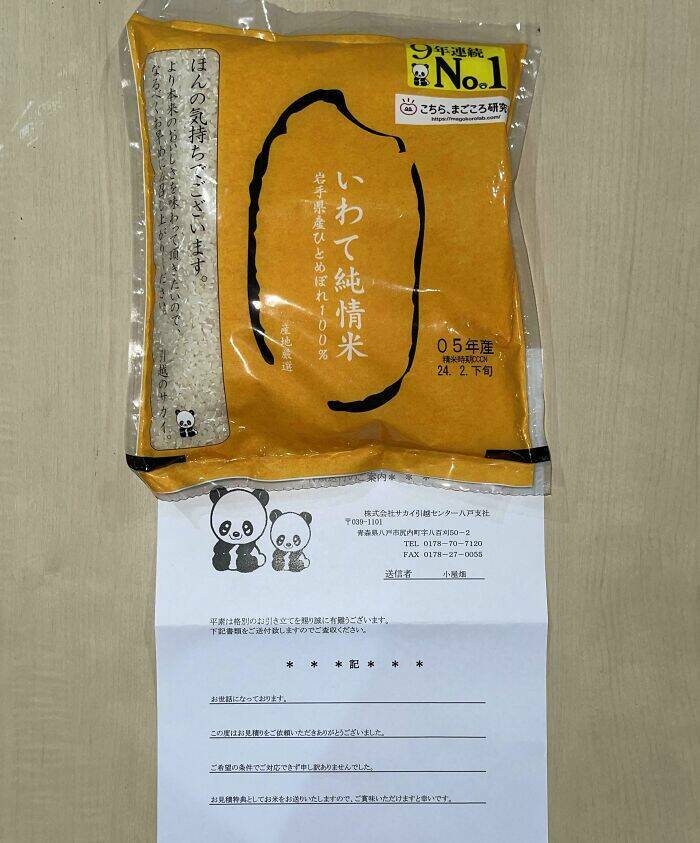 9年連続
No.1
こちら、まごころ研究
https://magokorolab.com/
ほんの気持ちでございます。
より本来のおいしさを味わって頂きたいので、
なるべくお早めにお召し上がりくださいませ。
引越のサカイ。
いわて純情米
岩手県産ひとめぼれ100%
産地厳選
05年産
精米時期CCCN
24. 2. 下旬
ご案内* * *
株式会社サカイ引越センター八戸支社
〒039-1101
青森県八戸市尻内町字八百刈50-2
TEL 0178-70-7120
FAX 0178-27-0055
送信者 小屋畑
平素は格別のお引き立てを賜り誠に有難うございます。
下記書類をご送付致しますのでご査収ください。
* * *記* * *
お世話になっております。
この度はお見積りをご依頼いただきありがとうございました。
ご希望の条件でご対応できず申し訳ありませんでした。
お見積特典としてお米をお送りいたしますので、ご賞味いただけますと幸いです。